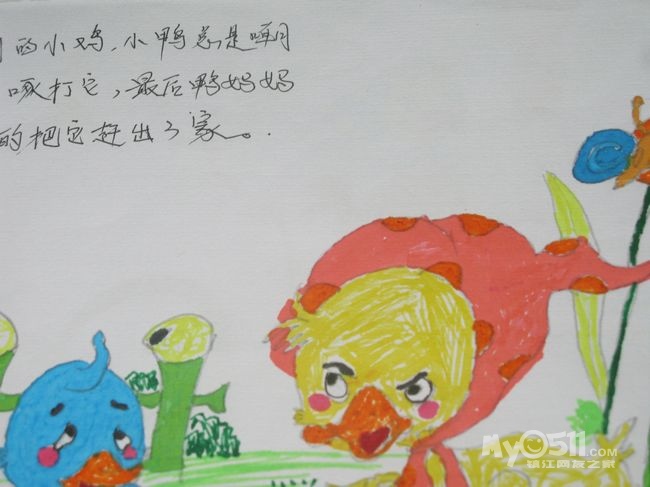 的小鸡，小鸭总是
啄打它，最后鸭妈妈
的把它赶出了家。
My0511.com
镇江网友之家